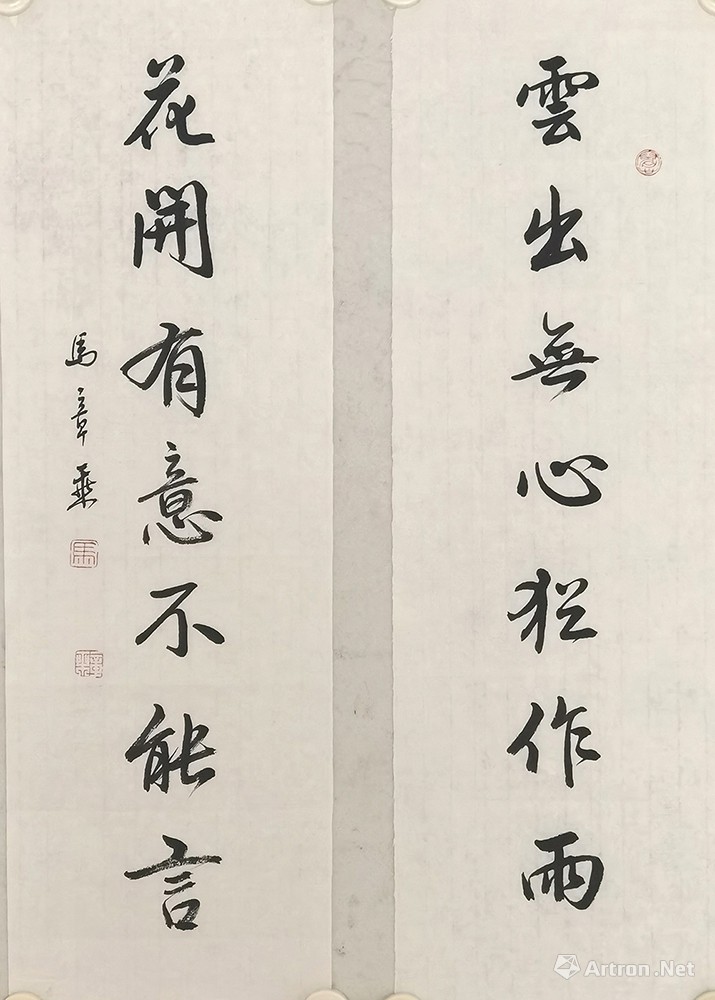 雲出無心猶作雨
花開有意不能言
馬章乘
馬
Artron.Net